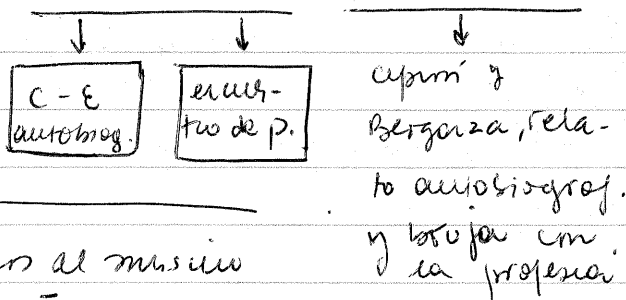 C - E
autobiog.
encuen-
tro de p.
cipión y
Berganza, rela-
to autobiograf.
y bruja con
la profecía
al mismo